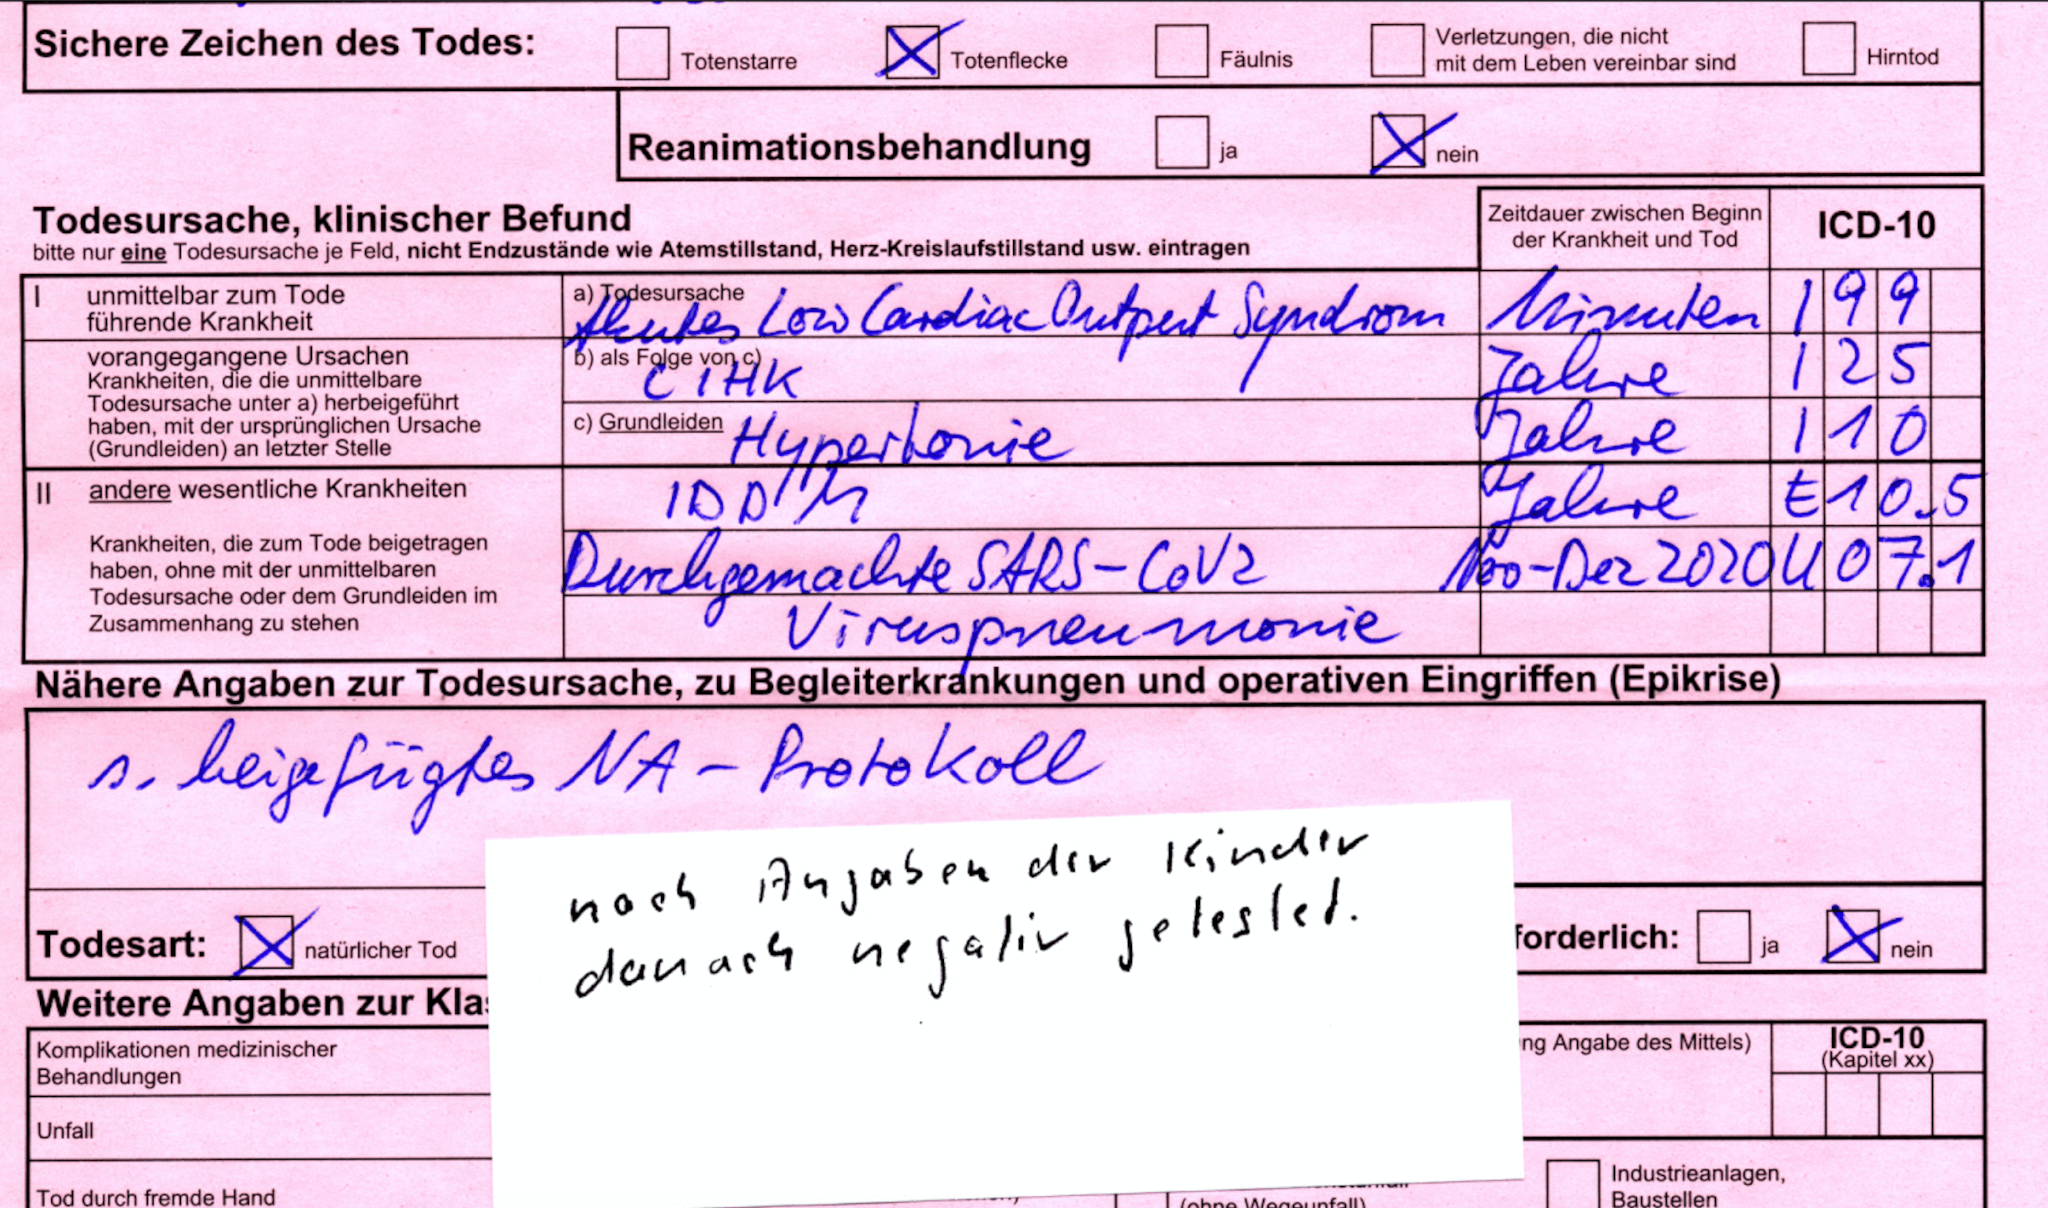 Sichere Zeichen des Todes: Totenstarre Totenflecke Fäulnis Verletzungen, die nicht Hirntod
mit dem Leben vereinbar sind
Reanimationsbehandlung ja nein
Todesursache, klinischer Befund
bitte nur eine Todesursache je Feld, nicht Endzustände wie Atemstillstand, Herz-Kreislaufstillstand usw. eintragen
Zeitdauer zwischen Beginn
der Krankheit und Tod
ICD-10
I unmittelbar zum Tode
führende Krankheit
a) Todesursache
Akutes Low Cardiac Output Syndrom Minuten I 9 9
vorangegangene Ursachen
Krankheiten, die die unmittelbare
Todesursache unter a) herbeigeführt
haben, mit der ursprünglichen Ursache
(Grundleiden) an letzter Stelle
b) als Folge von c)
CIHK Jahre I 2 5
c) Grundleiden Hypertonie Jahre I 1 0
II andere wesentliche Krankheiten
Krankheiten, die zum Tode beigetragen
haben, ohne mit der unmittelbaren
Todesursache oder dem Grundleiden im
Zusammenhang zu stehen
IDDM Jahre E 1 0.5
Durchgemachte SARS-CoV2 Nov-Dez 2020 U 0 7.1
Viruspneumonie
Nähere Angaben zur Todesursache, zu Begleiterkrankungen und operativen Eingriffen (Epikrise)
s. beigefügtes NA-Protokoll
nach Angaben der Kinder
danach negativ getestet.
Todesart: natürlicher Tod
forderlich: ja nein
Weitere Angaben zur Klas
Komplikationen medizinischer
Behandlungen
ng Angabe des Mittels)
ICD-10
(Kapitel xx)
Unfall
Tod durch fremde Hand
(ohne Wegeunfall)
Industrieanlagen,
Baustellen